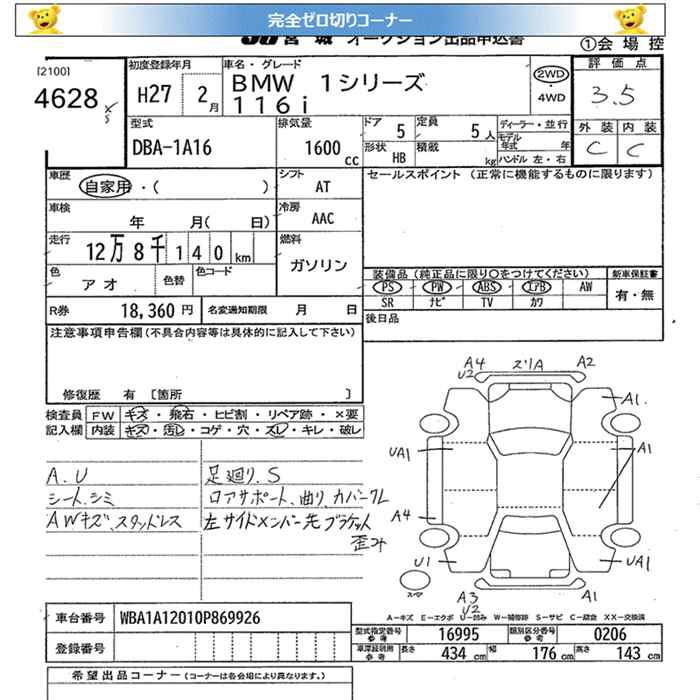 完全ゼロ切りコーナー
JU宮城 オークション出品申込書
①会場控
[2100]
4628
初度登録年月
H27 2月
車名・グレード
BMW 1シリーズ
116i
2WD
・
4WD
評価点
3.5
外装 内装
C C
型式
DBA-1A16
排気量
1600 cc
ドア 5
定員 5人
形状 HB
積載 kg
ディーラー・並行
モデル年式 年
ハンドル 左・右
車歴
自家用・( )
シフト
AT
セールスポイント (正常に機能するものに限ります)
車検
年 月( 日)
冷房
AAC
走行
12万8千140km
燃料
ガソリン
色
アオ
色替
色コード
装備品(純正品に限り○をつけてください)
新車保証書
PS PW ABS エアB AW
SR ナビ TV カワ
有・無
R券 18,360円
名変通知期限 月 日
後日品
注意事項申告欄(不具合内容等は具体的に記入して下さい)
修復歴 有 [箇所 ]
検査員 FW キズ・飛石・ヒビ割・リペア跡・×要
記入欄 内装 キズ・汚レ・コゲ・穴・スレ・キレ・破レ
A.U
シート、シミ
AWキズ、スタッドレス
足廻り.S
ロアサポート、曲り、カバークレ
左サイドメンバー先ブラケット
歪み
A4
U2
スリA
A2
A1
UA1
A1
A4
U1
UA1
スペア
A3
U2
A1
A-キズ E-エクボ U-凹み W-補修跡 S-サビ C-腐食 XX-交換済
車台番号 WBA1A12010P869926
登録番号
型式指定番号 参考 16995
類別区分番号 参考 0206
車庫証明用 参考 長さ 434cm 幅 176cm 高さ 143cm
希望出品コーナー(コーナーは各会場により異なります。)